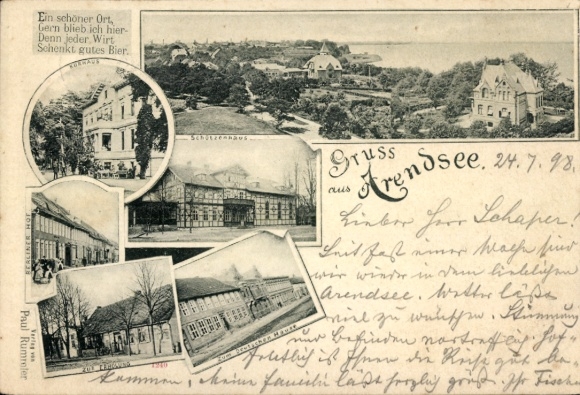 Ein schöner Ort,
Gern blieb ich hier-
Denn jeder Wirt
Schenkt gutes Bier.
KURHAUS
SCHÜTZENHAUS
BERLINER HOF
ZUR ERHOLUNG
1240
ZUM DEUTSCHEN HAUSE
Verlag von
Paul Rummler
Gruss
aus Arendsee. 24.7.98.
Lieber Herr Schaper!
Seit fast einer Woche sind
wir wieder in dem lieblichen
Arendsee. Wetter läßt
viel zu wünschen. Stimmung
und Befinden vortrefflich. Hof-
fentlich ist Ihnen die Reise gut be-
kommen, Meine Familie läßt herzlich grüßen. Ihr Fischer